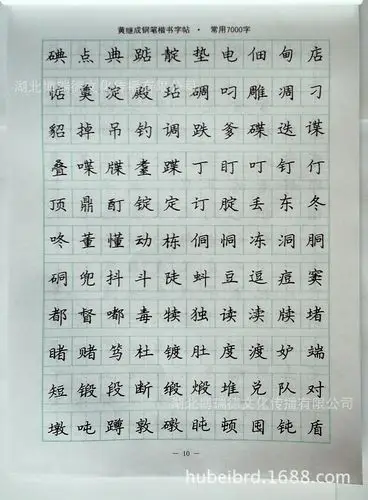 黄继成钢笔楷书字帖 · 常用7000字
碘点典踮靛垫电佃甸店
惦奠淀殿玷碉叼雕凋刁
貂掉吊钓调跌爹碟迭谍
叠喋牒耋蹀丁盯叮钉仃
顶鼎酊锭定订腚丢东冬
咚董懂动栋侗恫冻洞胴
硐兜抖斗陡蚪豆逗痘窦
都督嘟毒犊独读渎牍堵
睹赌笃杜镀肚度渡妒端
短锻段断缎煅堆兑队对
墩吨蹲敦礅盹顿囤钝盾
— 10 —
湖北博瑞德文化传播有限公司
湖北博瑞德文化传播有限公司
hubeibrd.1688.com